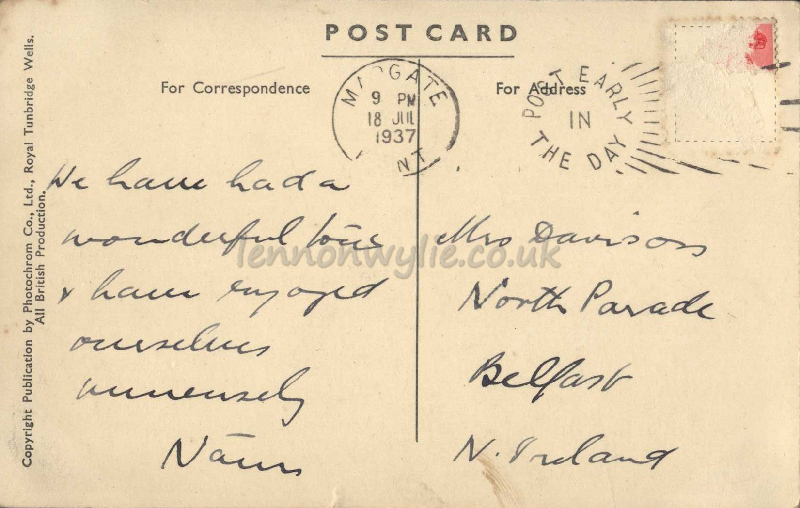 POST CARD
For Correspondence
For Address
MARGATE
9 PM
18 JUL
1937
KENT
POST EARLY
IN
THE DAY
We have had a
wonderful tour
& have enjoyed
ourselves
immensely
Mrs Davison
North Parade
Belfast
N. Ireland
Copyright Publication by Photochrom Co., Ltd., Royal Tunbridge Wells.
All British Production.
lennonwylie.co.uk